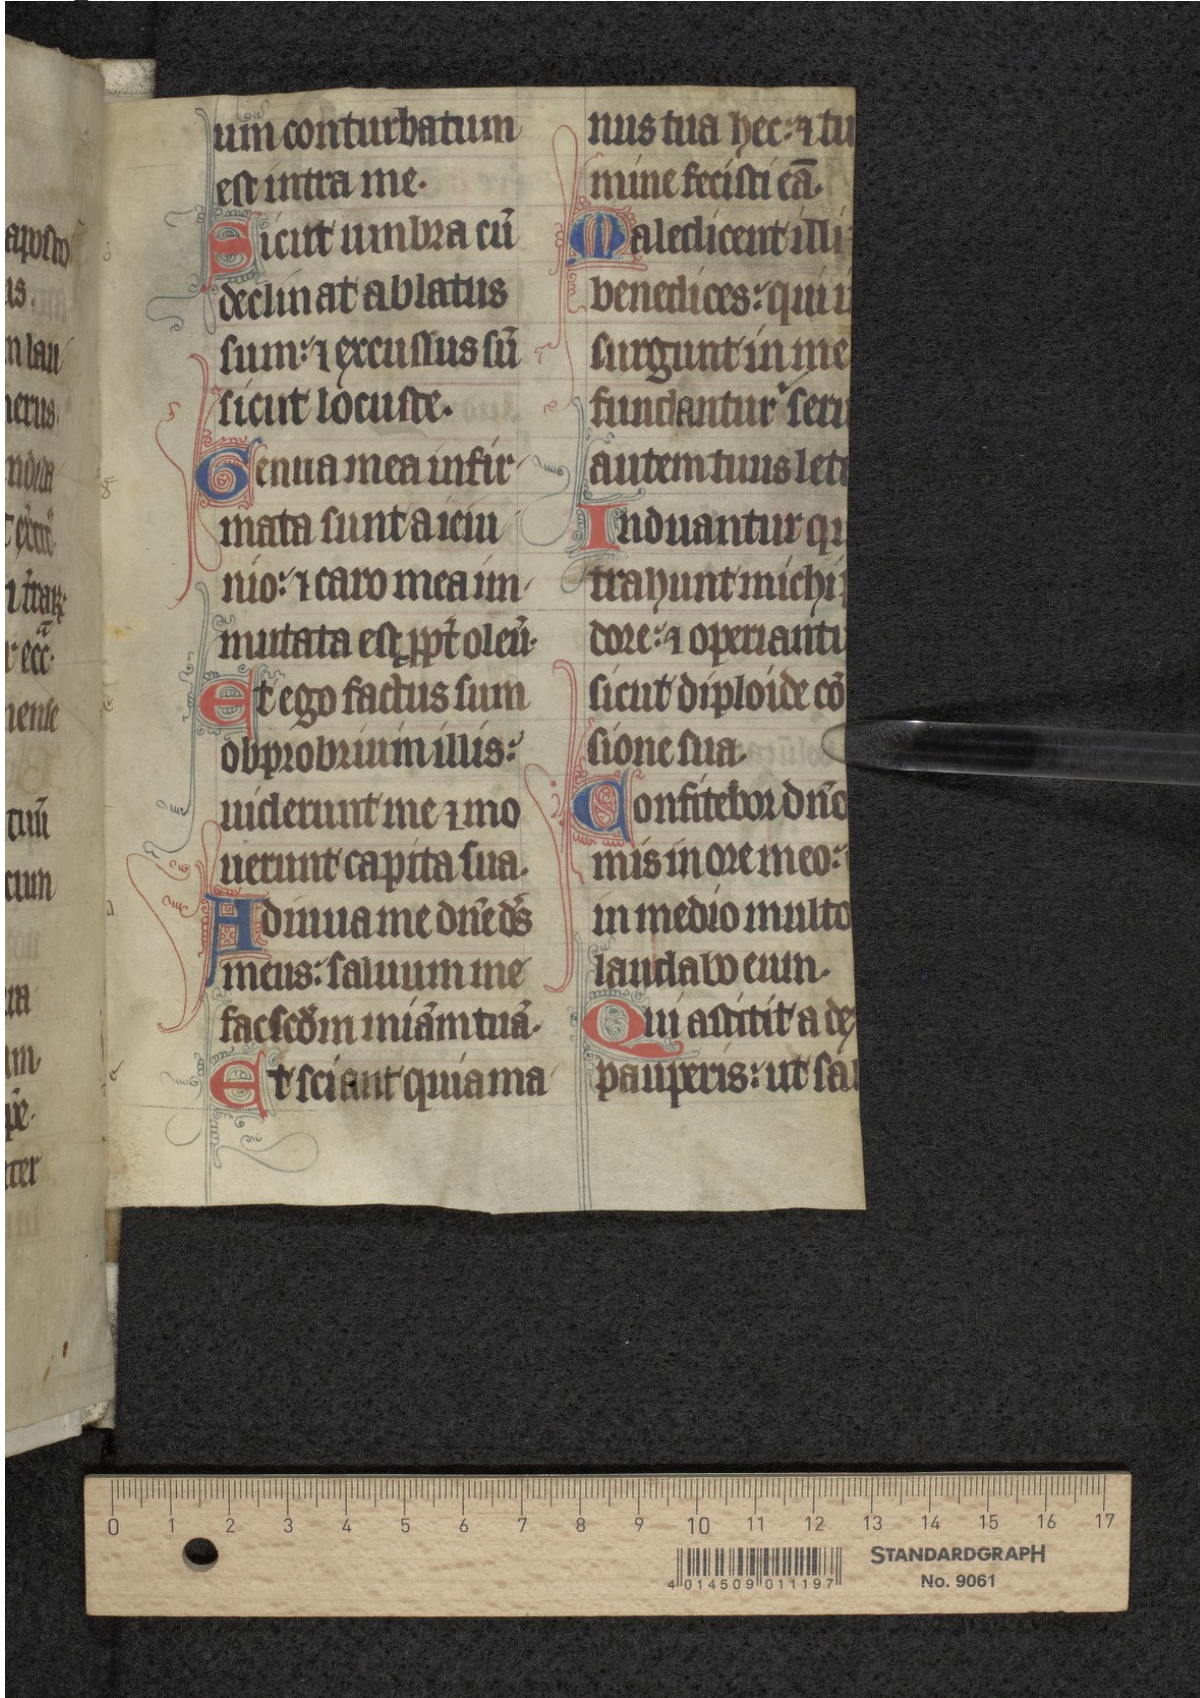 apostо
us.
m lau
nerus
tuū
cium
um conturbatum
est intra me.
Sicut umbra cū
declinat ablatus
sum: ⁊ excussus sū
sicut locuste.
Genua mea infir
mata sunt a ieiu
nio: ⁊ caro mea im
mutata est ꝓpt oleū.
Et ego factus sum
obprobrium illis:
uiderunt me ⁊ mo
uerunt capita sua.
Adiuua me dn̄e ds̄
meus: saluum me
fac scdm̄ miā̄m tuā.
Et sciant quia ma
nus tua hec: ⁊ tu
mine fecisti eā.
Maledicent illi
benedices: qui i
surgunt in me
fundantur seru
autem tuus let
Induantur qu
trahunt michi
dore: ⁊ operiantu
sicut diploide cō
sione sua.
Confitebor dn̄o
mis in ore meo:
in medio multo
laudabo eum.
Qui astitit a dex
pauperis: ut sal
0 1 2 3 4 5 6 7 8 9 10 11 12 13 14 15 16 17
STANDARDGRAPH
No. 9061
4 014509 011197